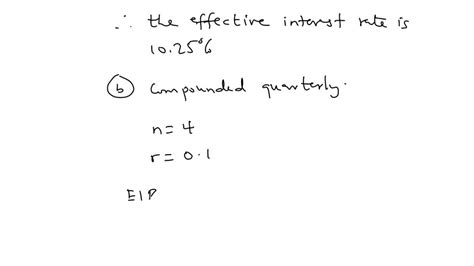 ∴ the effective interest rate is
10.25%
(b) Compounded quarterly.
n = 4
r = 0.1
EIR